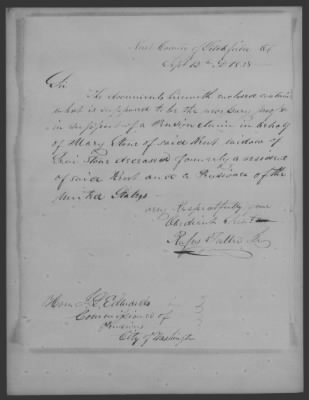 Sept 12th AD 1838
Sir
The documents herewith enclosed contain
what is supposed to be the necessary proofs
in support of a Pension claim in behalf
of Mary Stone of said Kent widow of
Levi Stone deceased formerly a resident
of said Kent and a Pensioner of the
United States
very Respectfully your
Obedient Servt
Rufus Fuller
Hon. J L Edwards
Commissioner of
Pensions
City of Washington